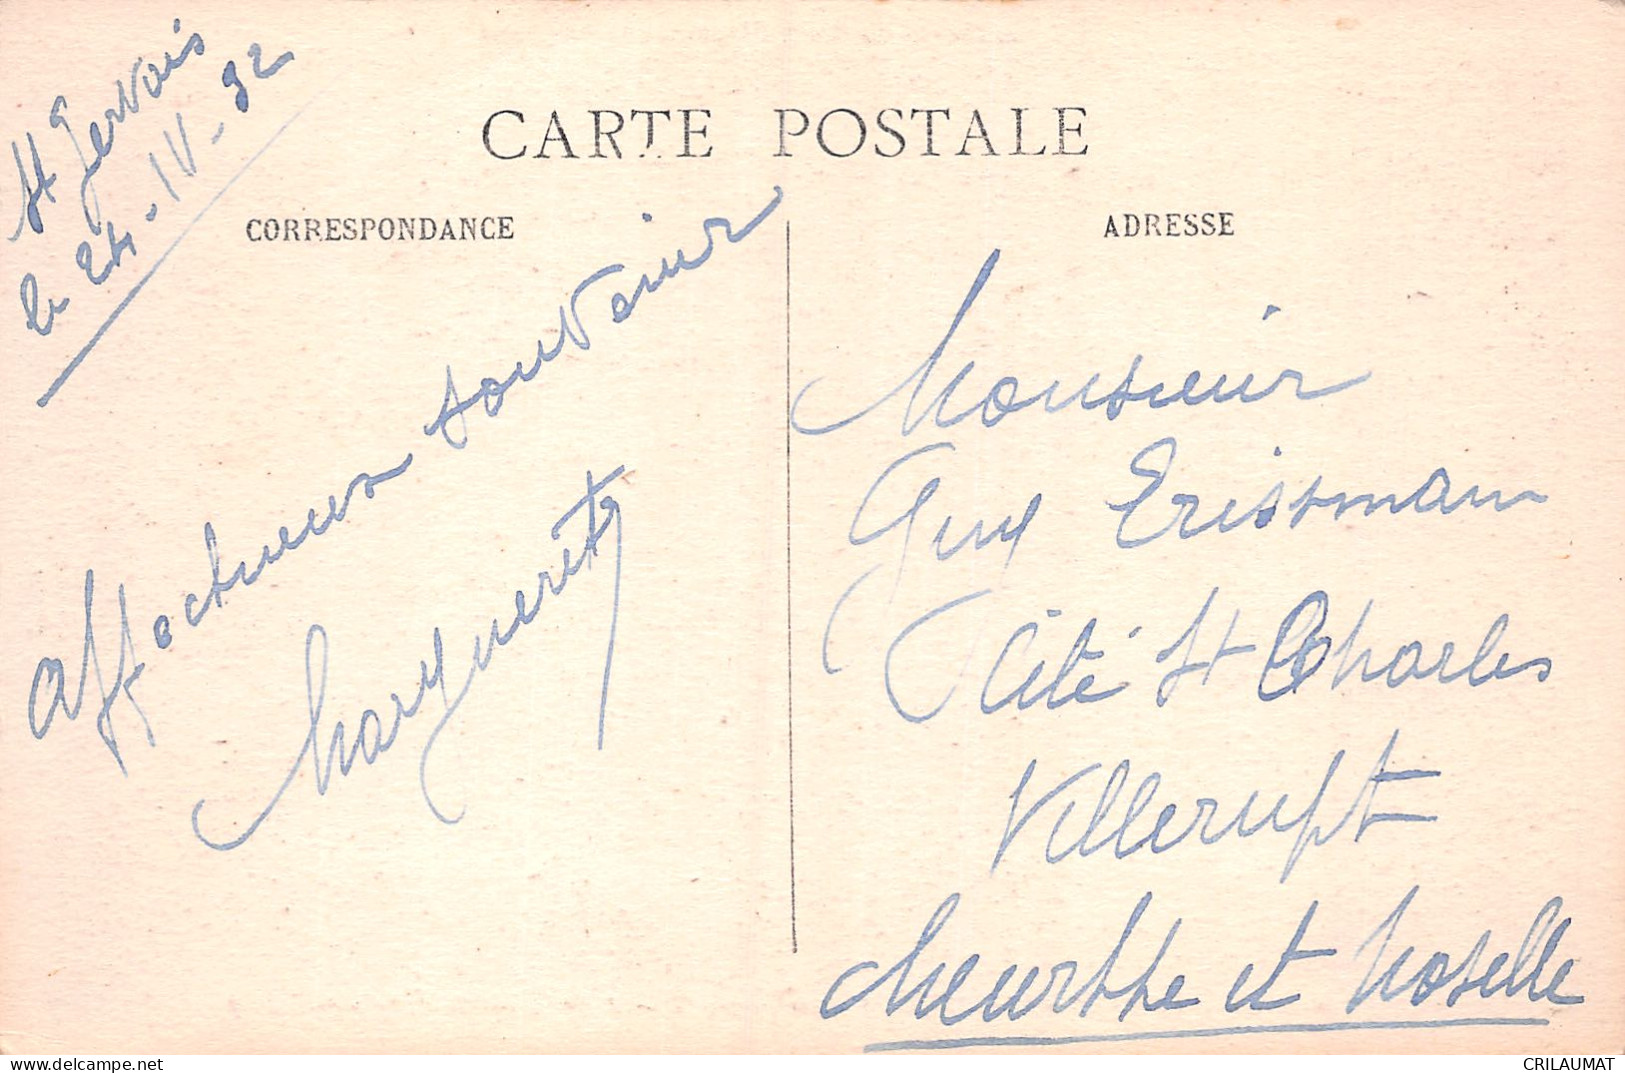 CARTE POSTALE
CORRESPONDANCE
ADRESSE
St Gervais
le 24-IV-32
Affectueux souvenir
Marguerite
Monsieur
Guy Erissmann
Cité St Charles
Villerupt
Meurthe et Moselle
CRILAUMAT